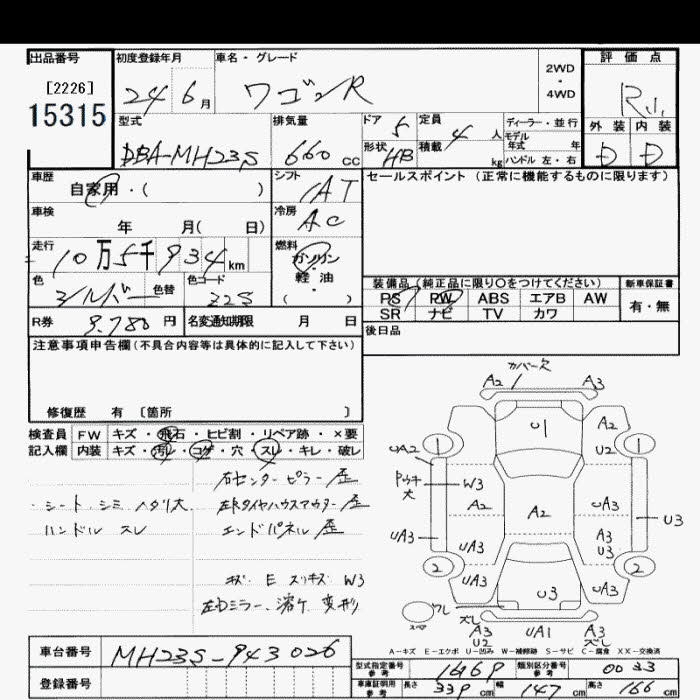 出品番号
[2226]
15315
初度登録年月
24 6月
車名・グレード
ワゴンR
2WD
・
4WD
評価点
R1.
外装 内装
D D
型式
DBA-MH23S
排気量
660 cc
ドア 5
形状 HB
定員 4 人
積載 kg
ディーラー・並行
モデル
年式 年
ハンドル 左・右
車歴
自家用・( )
シフト
IAT
セールスポイント (正常に機能するものに限ります)
車検
年 月( 日)
冷房
AC
走行
10万5千934km
燃料
ガソリン
・
軽油
( )
色
シルバー
色替
色コード
Z2S
装備品 (純正品に限り○をつけてください)
PS PW ABS エアB AW
SR ナビ TV カワ
新車保証書
有・無
R券 9.780円
名変通知期限 月 日
後日品
注意事項申告欄(不具合内容等は具体的に記入して下さい)
修復歴 有 〔箇所 〕
検査員
記入欄
FW キズ・飛石・ヒビ割・リペア跡・×要
内装 キズ・汚レ・コゲ・穴・スレ・キレ・破レ
右センターピラー歪
・シート シミ ヘタリ大
左Rタイヤハウスアウター歪
ハンドル スレ
エンドパネル歪
キズ E スリキズ W3
左Dミラー、溶ケ 変形
カバー欠
A2 A3
U1
A2
U2
1 1
UA2
Pウチキ
大
W3
A2
A2
UA3
U3
UA3
A3
U3
UA3
2 2
UA3
U3
ワレ
スペア
ズレ
A3
U2
UA1
A3
ズレ
A-キズ E-エクボ U-凹み W-補修跡 S-サビ C-腐食 XX-交換済
車台番号
MH23S-943026
登録番号
型式指定番号
参考
16169
類別区分番号
参考
0033
車庫証明用
参考
長さ 339cm 幅 147cm 高さ 166cm